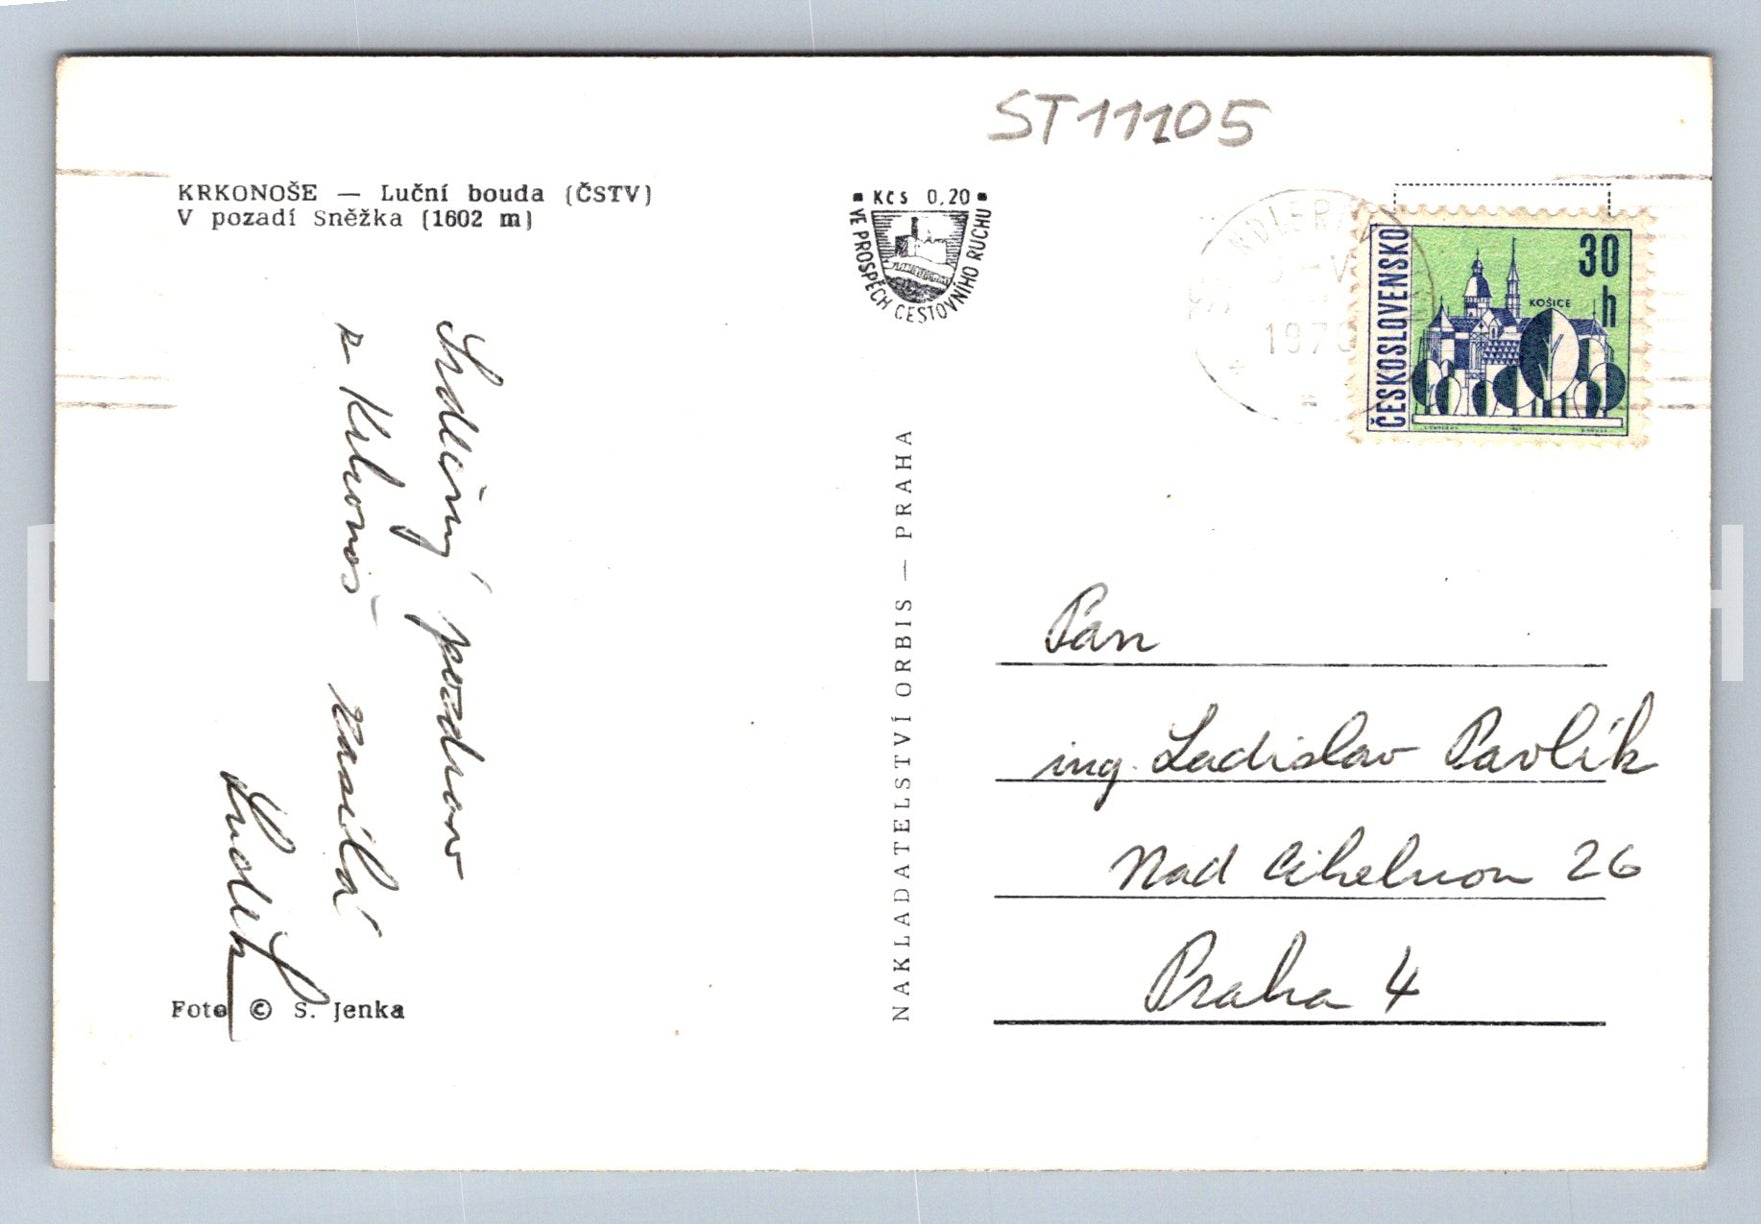 ST11105
KRKONOŠE — Luční bouda (ČSTV)
V pozadí Sněžka (1602 m)
Kčs 0,20
VE PROSPĚCH CESTOVNÍHO RUCHU
1970
ČESKOSLOVENSKO
30
h
KOŠICE
Srdečný pozdrav
z Krkonoš zasílá
Luděk
NAKLADATELSTVÍ ORBIS — PRAHA
Pan
ing. Ladislav Pavlík
Nad Cihelnou 26
Praha 4
Foto © S. Jenka